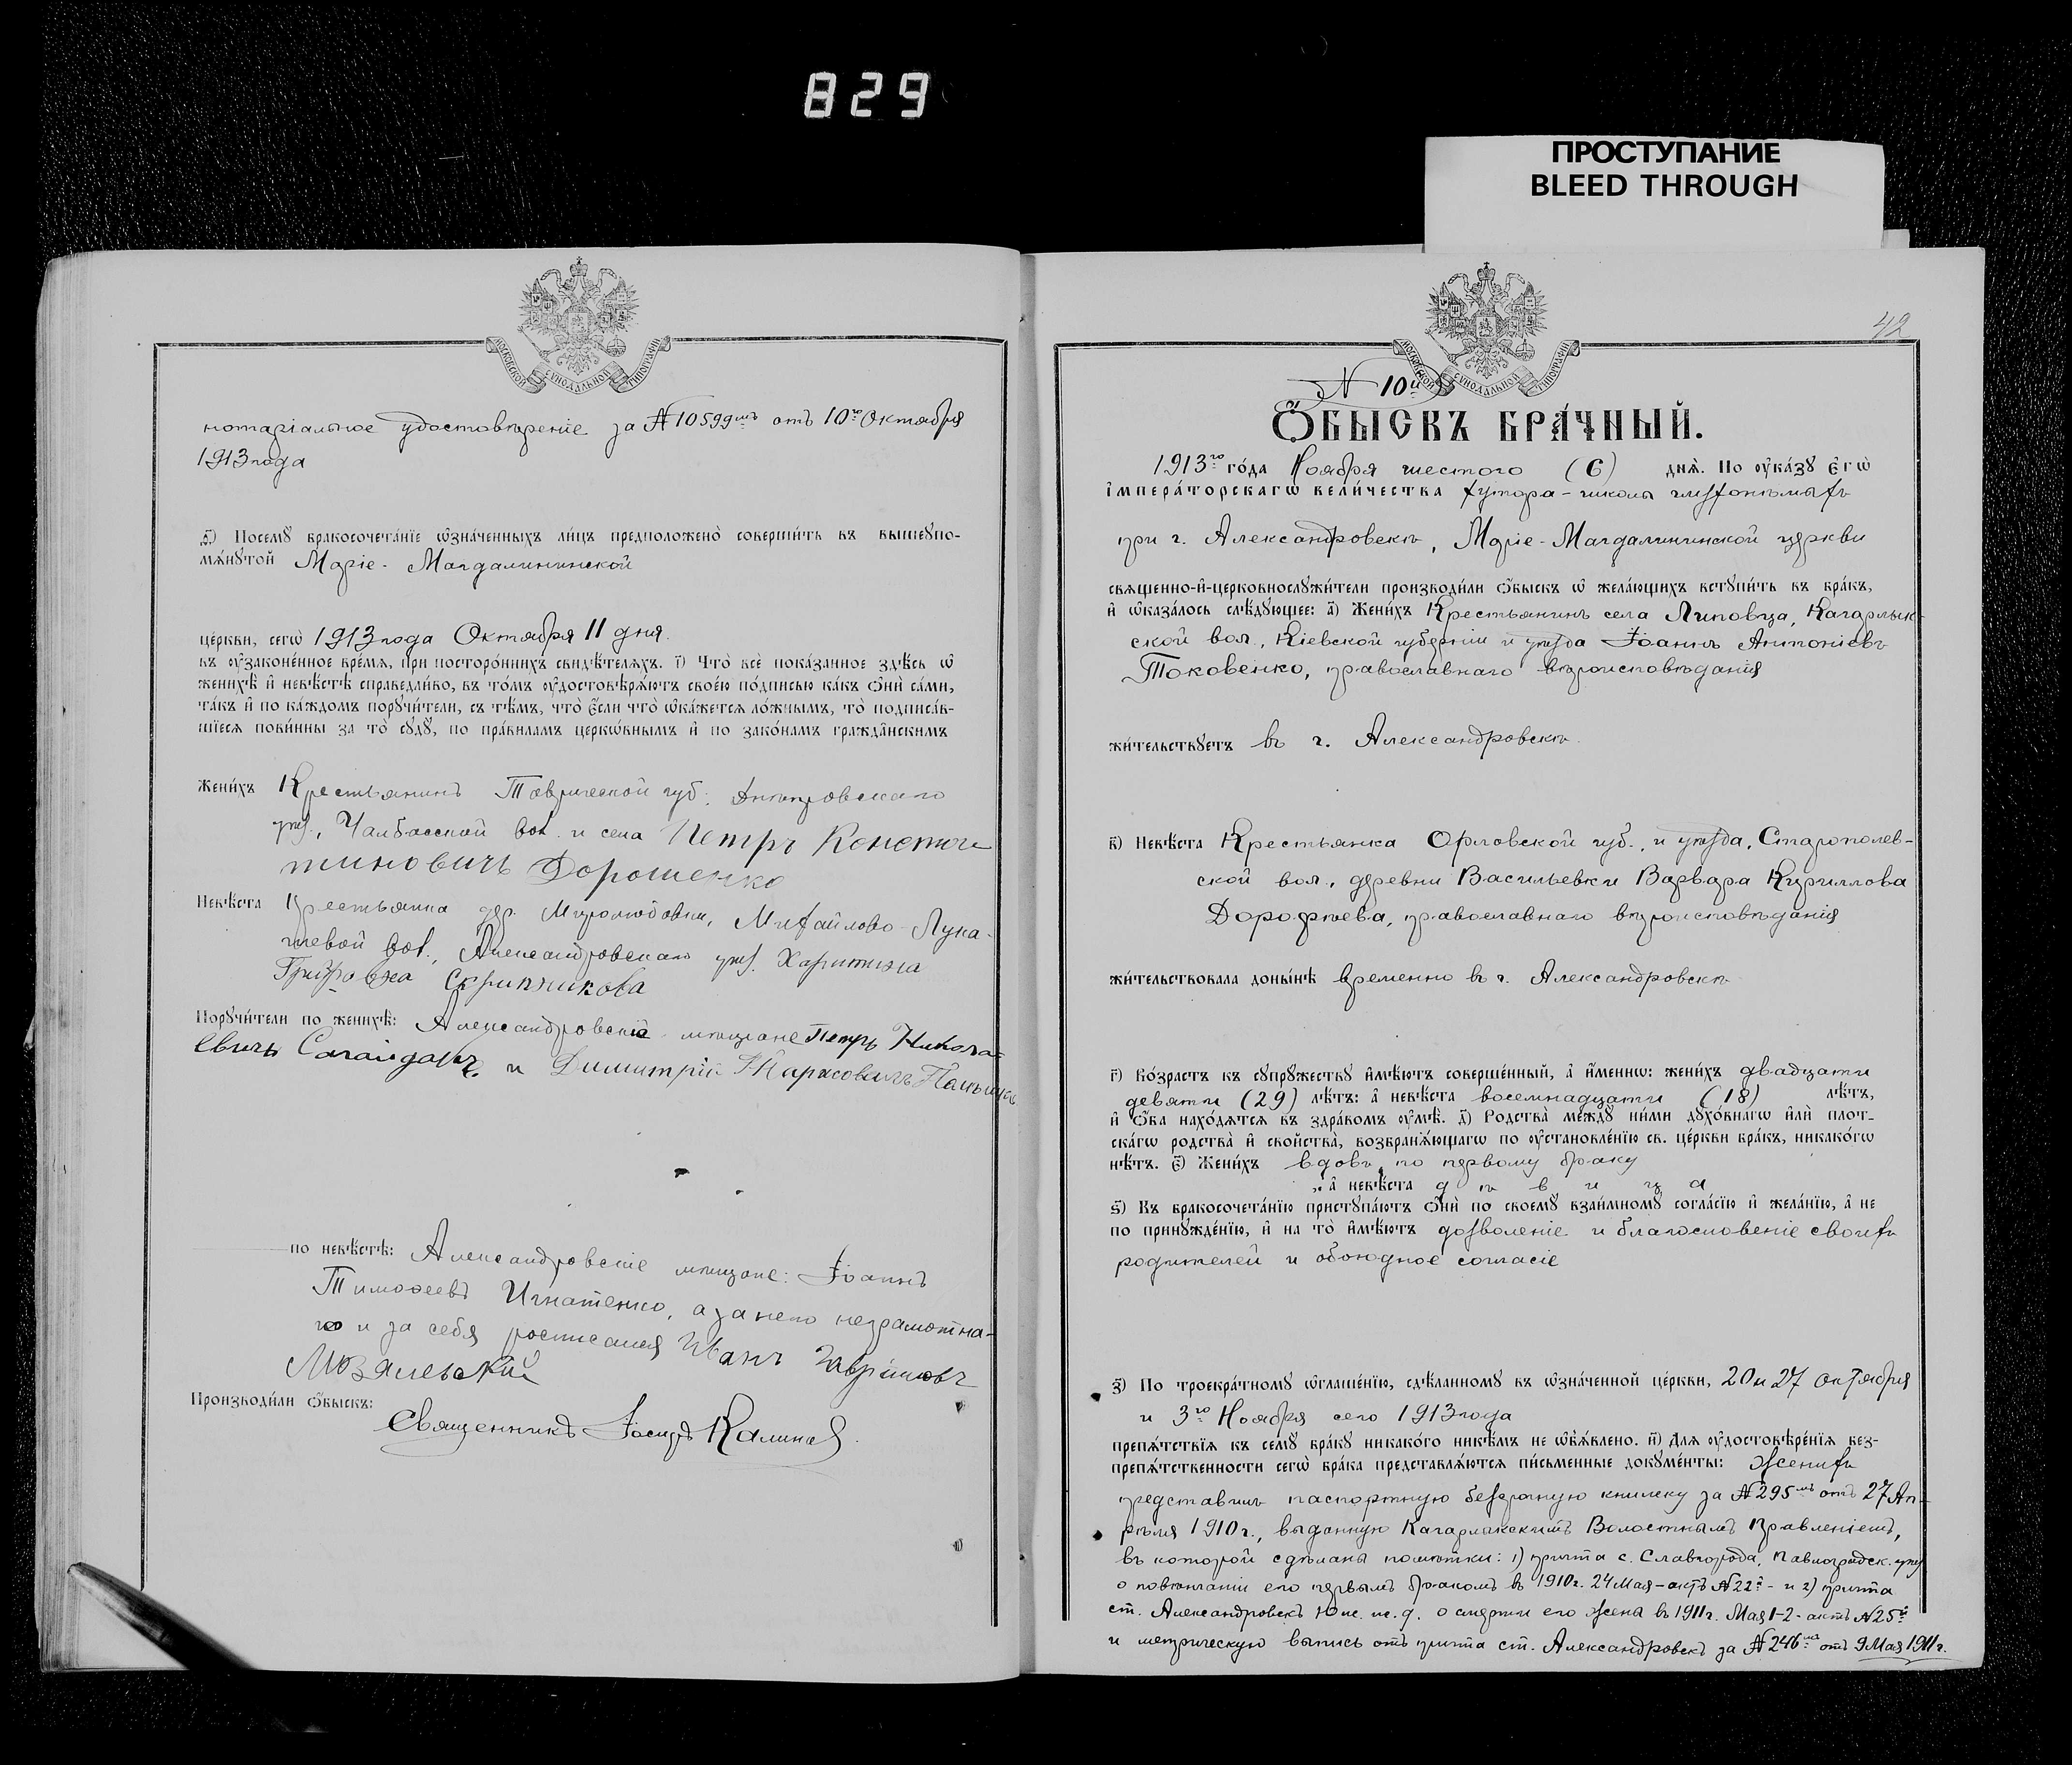 829
ПРОСТУПАНИЕ
BLEED THROUGH
МОСКОВСКОЙ СѴНОДАЛЬНОЙ ТИПОГРАФІИ
нотаріальное удостовѣреніе за № 10599мъ отъ 10го Октября
1913 года
Посемꙋ бракосочета́нїе ѡ҆зна́ченныхъ ли́цъ предположено̀ соверши́ть въ вышеꙋпо-
мѧ́нꙋтой Маріе-Магдалининской
це́ркви, сегѡ̀ 1913 года Октября 11 дня.
въ ᲂу҆законе́нное вре́мѧ, при посторо́ннихъ свидѣ́телѧхъ. і҃) Что̀ всѐ пока́занное здѣ́сь ѡ҆
женихѣ̀ и҆ невѣ́стѣ справедли́во, въ то́мъ ᲂу҆достовѣрѧ́ютъ свое́ю по́дписью ка́къ ѻ҆нѝ са́ми,
та́къ и҆ по ка́ждомъ порꙋчи́тели, съ тѣ́мъ, что̀ є҆́сли что̀ ѡ҆ка́жетсѧ ло́жнымъ, то̀ подписа́в-
шїесѧ пови́нны за то̀ сꙋдꙋ̀, по пра́виламъ церко́внымъ и҆ по зако́намъ гражда́нскимъ
Жени́хъ Крестьянинъ Таврической губ. Днѣпровскаго
уѣз., Чалбасской вол. и села Петръ Констан
тиновичъ Дорошенко
Невѣ́ста Крестьянка дер. Миролюбовки, Михайлово-Лука-
шевой вол., Александровскаго уѣз. Харитина
Скрипникова
Порꙋчи́тели по женихѣ̀: Александровскіе мѣщане Петръ Никола-
евичъ Сагайдакъ и Димитрій Тарасовичъ
по невѣ́стѣ: Александровскіе мѣщане: Іоаннъ
Тимоѳеевъ Игнатенко, а за него неграмотна-
го и за себя росписался Иванъ Гавриловъ
Мозалевскій
Производи́ли ѻ҆́быскъ:
Священникъ Іосифъ Калинев
42
МОСКОВСКОЙ СѴНОДАЛЬНОЙ ТИПОГРАФІИ
№ 10й
Ѻ҆́БЫСКЪ БРА́ЧНЫЙ.
1913го го́да Ноября шестого (6) днѧ̀. По ᲂу҆ка́зꙋ є҆гѡ̀
і҆мпера́торскагѡ вели́чества хутора-школы глухонѣмыхъ
при г. Александровскѣ, Маріе-Магдалининской церкви
свѧще́нно-и҆-церковнослꙋжи́тели производи́ли ѻ҆́быскъ ѡ҆ жела́ющихъ встꙋпи́ть въ бра́къ,
и҆ ѡ҆каза́лось слѣ́дꙋющее: а҃) Жени́хъ Крестьянинъ села Липовца, Кагарлык-
ской вол., Кіевской губерніи и уѣзда Іоаннъ Антоніевъ
Токовенко, православнаго вѣроисповѣданія
жи́тельствꙋетъ въ г. Александровскѣ.
в҃) Невѣ́ста Крестьянка Орловской губ., и уѣзда, Старополев-
ской вол., деревни Васильевки Варвара Кириллова
Дорофѣева, православнаго вѣроисповѣданія
жи́тельствовала доны́нѣ временно въ г. Александровскѣ
г҃) Во́зрастъ къ сꙋпрꙋ́жествꙋ и҆мѣ́ютъ соверше́нный, а҆ и҆́меннѡ: жени́хъ двадцати
девяти (29) лѣ́тъ: а҆ невѣ́ста восемнадцати (18) лѣ́тъ,
и҆ ѻ҆́ба нахо́дѧтсѧ въ здра́вомъ ᲂу҆мѣ̀. д҃) Родства̀ ме́ждꙋ ни́ми дꙋхо́внагѡ и҆лѝ плот-
ска́гѡ родства̀ и҆ свойства̀, возбранѧ́ющагѡ по ᲂу҆становле́нїю св. це́ркви бра́къ, никако́гѡ
нѣ́тъ. є҃) Жени́хъ вдовъ, по первому браку
а҆ невѣ́ста дѣвица
ѕ҃) Къ бракосочета́нїю пристꙋпа́ютъ ѻ҆нѝ по своемꙋ̀ взаи́мномꙋ согла́сїю и҆ жела́нїю, а҆ не
по принꙋжде́нїю, и҆ на то̀ и҆мѣ́ютъ дозволеніе и благословеніе своихъ
родителей и обоюдное согласіе
з҃) По троекра́тномꙋ ѡ҆глаше́нїю, сдѣ́ланномꙋ въ ѡ҆зна́ченной це́ркви, 20 и 27 октября
и 3го Ноября сего 1913 года
препѧ́тствїѧ къ семꙋ̀ бра́кꙋ никако́го никѣ́мъ не ѡ҆б̾ѧ́влено. и҃) Длѧ ᲂу҆достовѣре́нїѧ без-
препѧ́тственности сегѡ̀ бра́ка представлѧ́ютсѧ пи́сьменные докꙋме́нты: Женихъ
представилъ паспортную безсрочную книжку за № 295мъ отъ 27 Ап-
рѣля 1910 г., выданную Кагарлакскимъ Волостнымъ Правленіемъ,
въ которой сдѣланы помѣтки: 1) причта с. Славгорода, Павлоградск. уѣз.
о повѣнчаніи его первымъ бракомъ въ 1910 г. 24 Мая – актъ № 22й – и 2) причта
ст. Александровскъ Юж. ж. д. о смерти его жены въ 1911 г. Мая 1-2 – актъ № 25й
и метрическую выпись отъ причта ст. Александровскъ за № 246мъ отъ 9 Мая 1911 г.